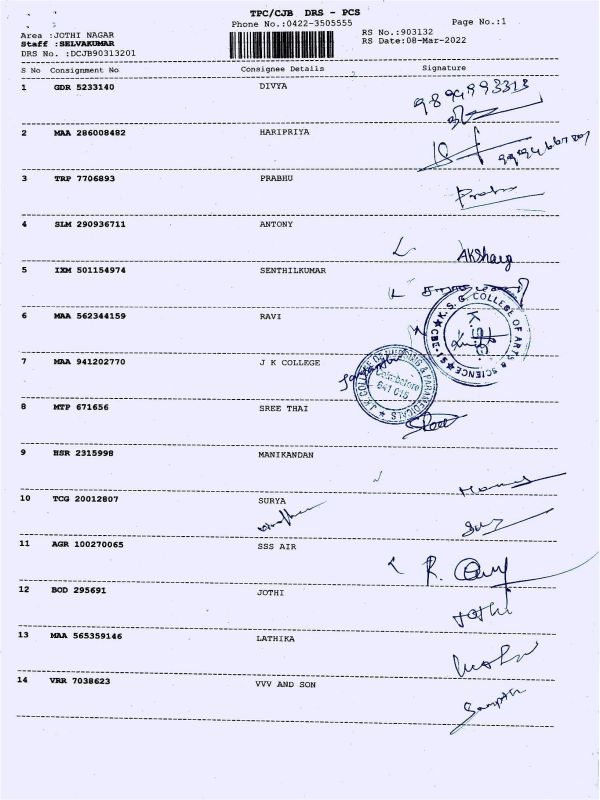 TPC/CJB DRS - PCS
Phone No.:0422-3505555 Page No.:1
Area :JOTHI NAGAR RS No.:903132
Staff :SELVAKUMAR RS Date:08-Mar-2022
DRS No. :DCJB90313201
S No Consignment No Consignee Details Signature
1 GDR 5233140 DIVYA
2 MAA 286008482 HARIPRIYA
3 TRP 7706893 PRABHU
Prabu
4 SLM 290936711 ANTONY
AKSharg
5 IXM 501154974 SENTHILKUMAR
6 MAA 562344159 RAVI
K. S. G. COLLEGE OF ARTS & SCIENCE ★ CBE-15 ★
7 MAA 941202770 J K COLLEGE
J.K COLLEGE OF NURSING & PARAMEDICALS ★
Coimbatore
641 015
8 MTP 671656 SREE THAI
Sree
9 HSR 2315998 MANIKANDAN
10 TCG 20012807 SURYA
11 AGR 100270065 SSS AIR
12 BOD 295691 JOTHI
Jothi
13 MAA 565359146 LATHIKA
14 VRR 7038623 VVV AND SON
Sampth